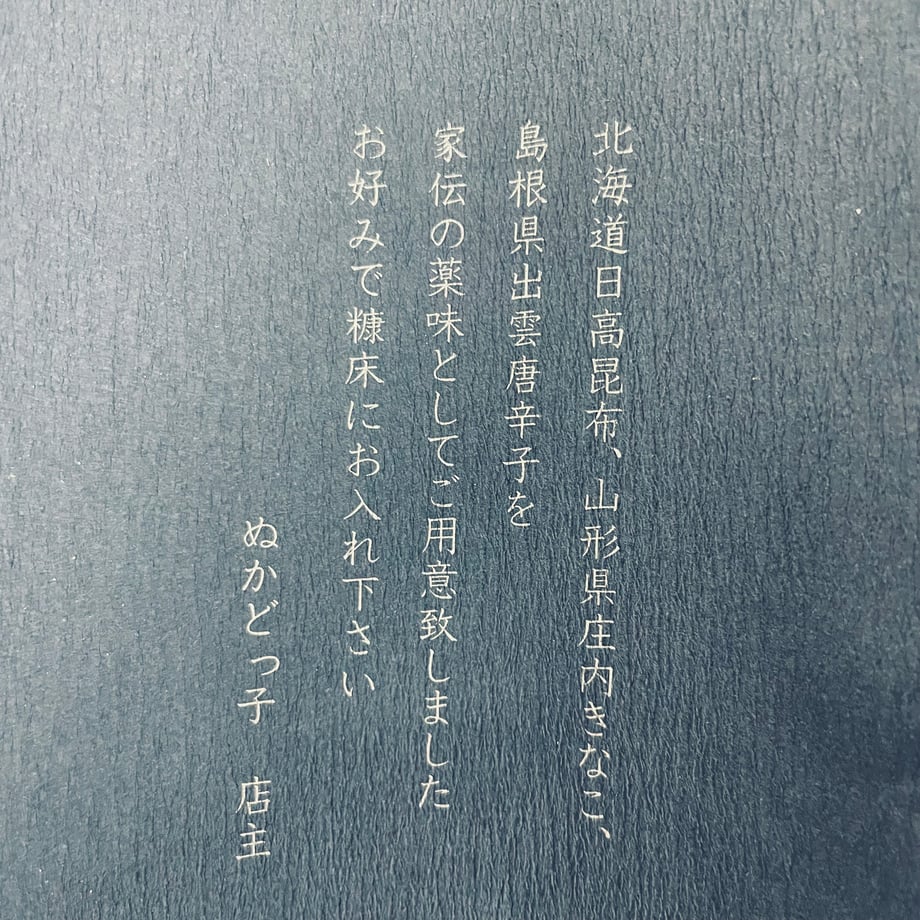 北海道日高昆布、山形県庄内きなこ、
島根県出雲唐辛子を
家伝の薬味としてご用意致しました
お好みで糠床にお入れ下さい
ぬかどっ子　店主